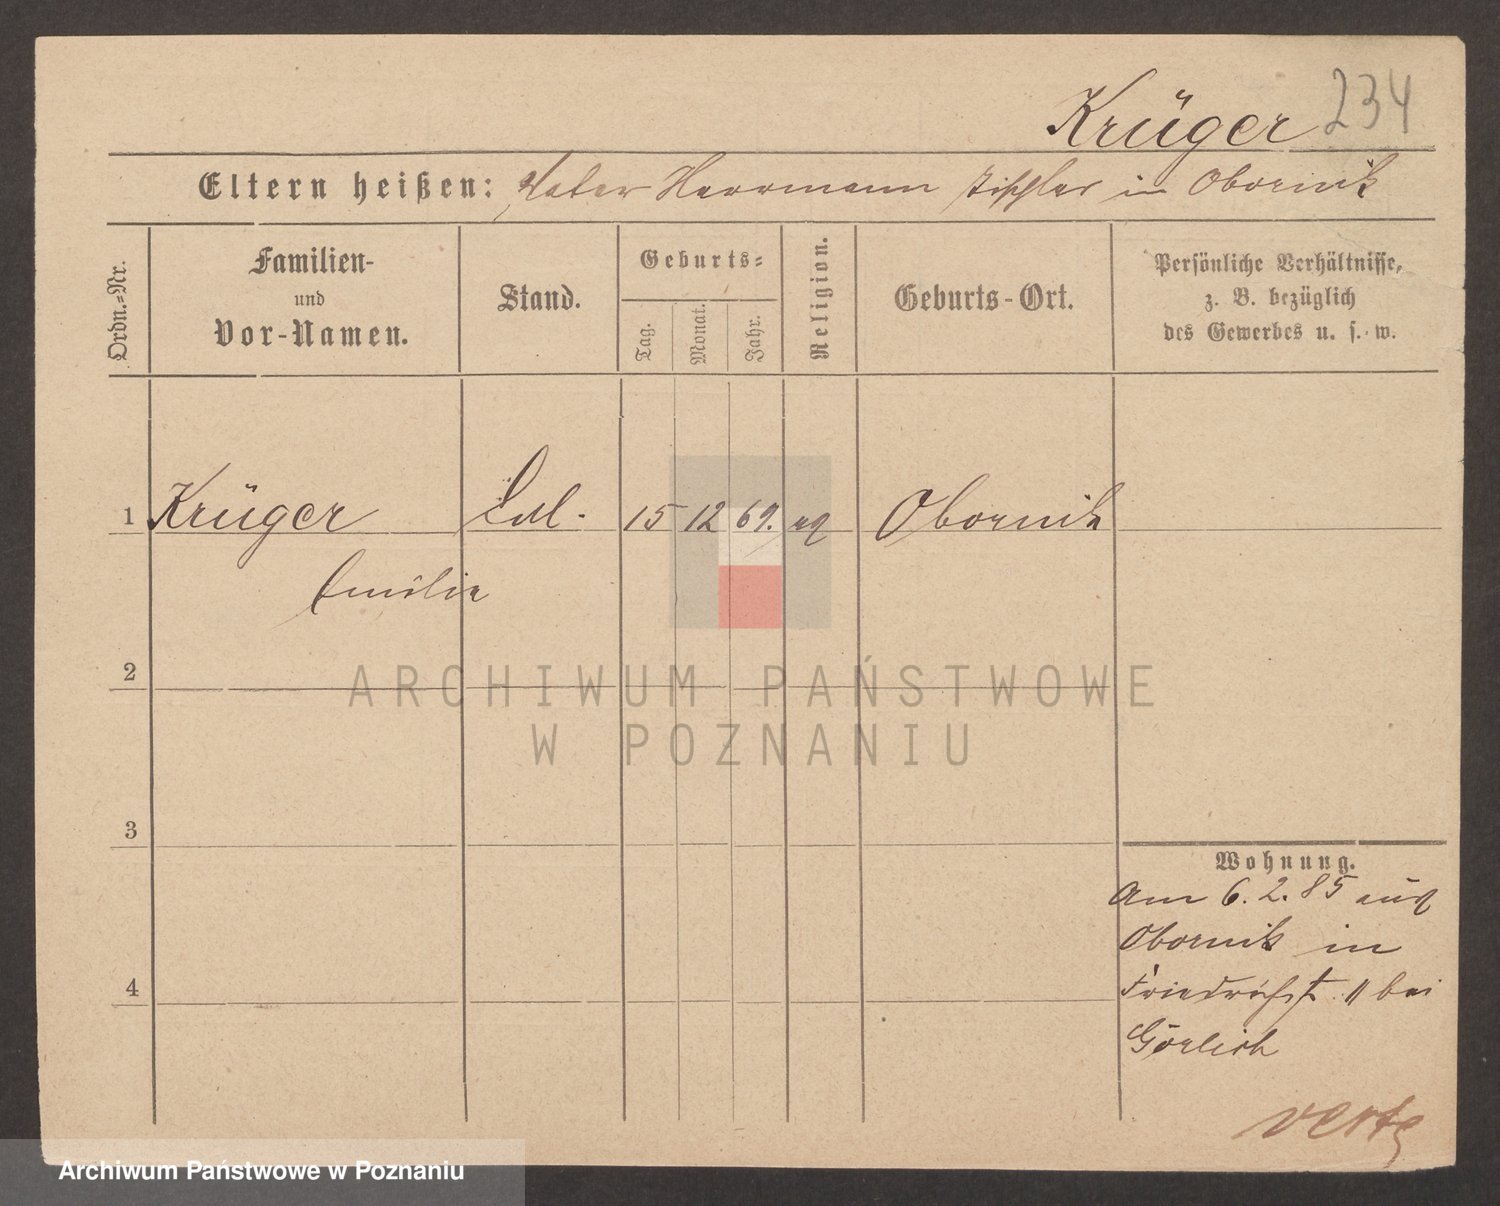 Krüger 234
Eltern heißen: Vater Herrmann Tischler in Obornik
Ordn.=Nr.
Familien-
und
Vor-Namen.
Stand.
Geburts=
Tag.
Monat.
Jahr.
Religion.
Geburts-Ort.
Persönliche Verhältnisse,
z. B. bezüglich
des Gewerbes u. s. w.
1 Krüger 15 12 69. Obornik
Emilie
2
3
4
Wohnung.
Am 6.2.85 aus
Obornik in
Friedrichst. 11 bei
verte
ARCHIWUM PAŃSTWOWE
W POZNANIU
Archiwum Państwowe w Poznaniu